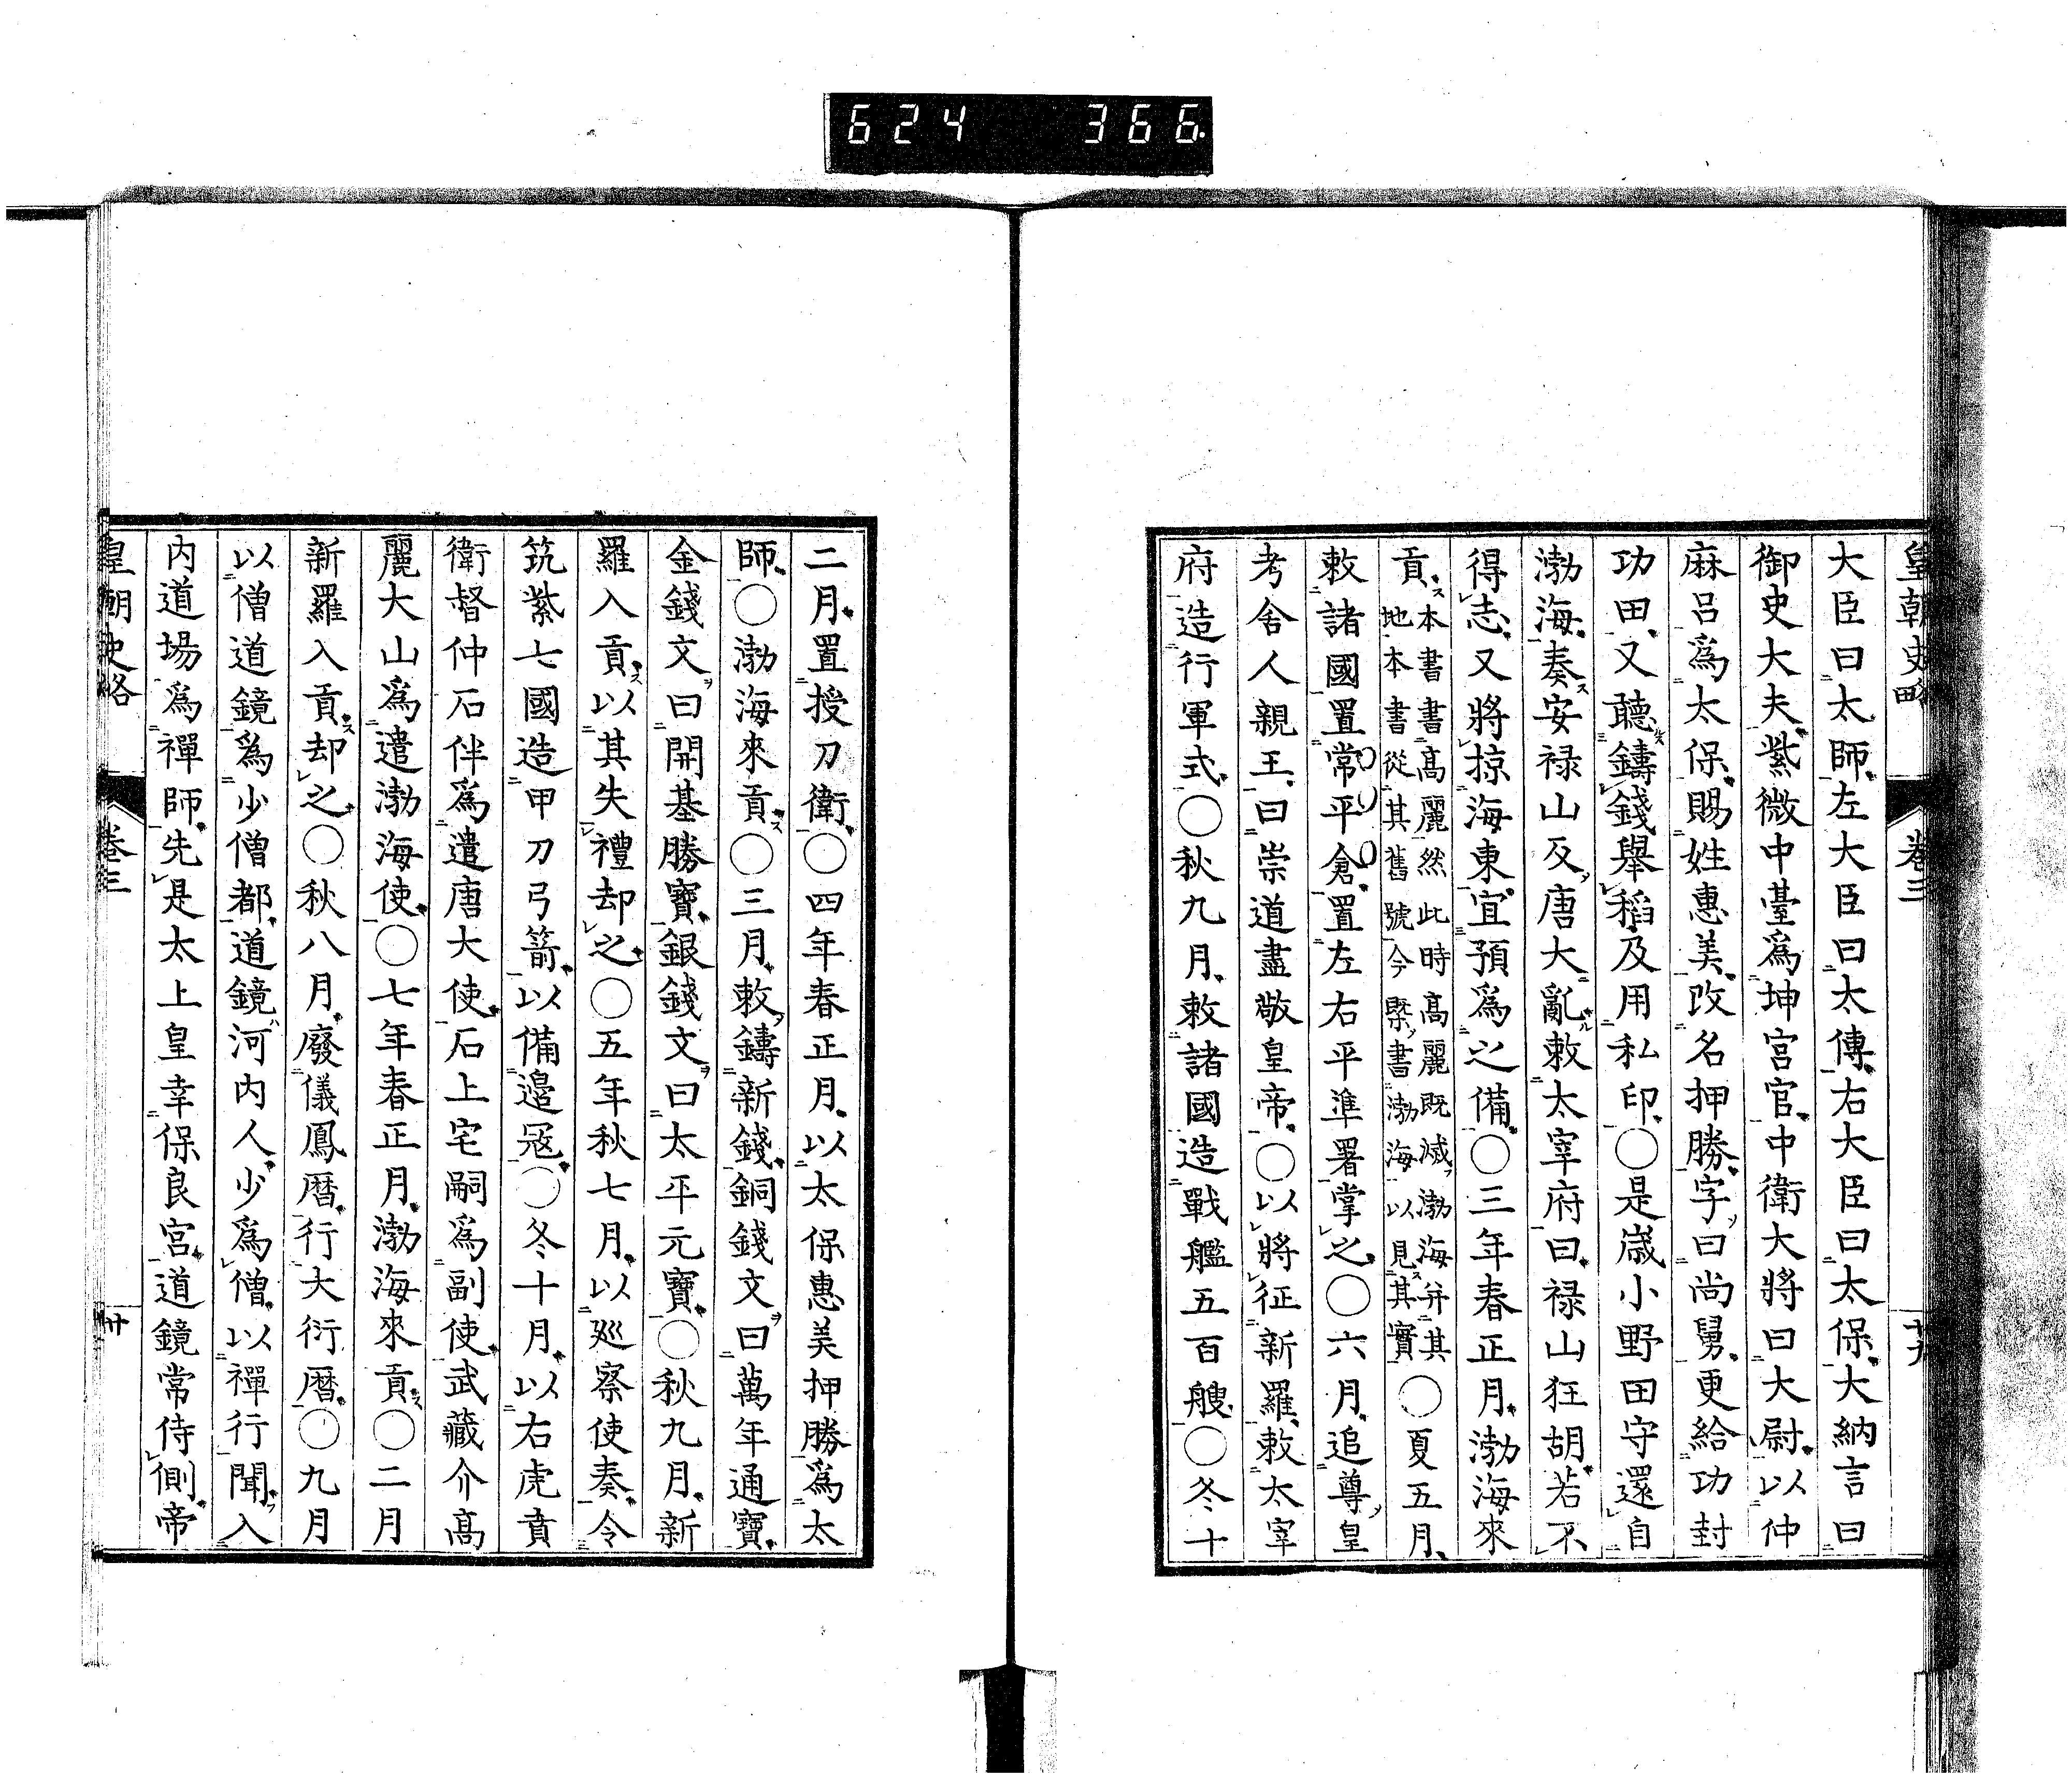 624 366
皇朝史略 卷三 十九
大臣曰太師左大臣曰太傳右大臣曰太保大納言曰
御史大夫紫微中臺爲坤宮官中衛大將曰大尉以仲
麻呂爲太保賜姓惠美改名押勝字曰尚舅更給功封
功田又聽鑄錢舉稻及用私印○是歳小野田守還自
渤海奏安禄山反唐大亂敕太宰府曰禄山狂胡若不
得志又將掠海東宜預爲之備○三年春正月渤海來
貢本書書高麗然此時高麗既滅渤海并其地本書從其舊號今槩書渤海以見其實○夏五月
敕諸國置常平倉置左右平準署掌之○六月追尊皇
考舍人親王曰崇道盡敬皇帝○以將征新羅敕太宰
府造行軍式○秋九月敕諸國造戰艦五百艘○冬十
二月置授刀衛○四年春正月以太保惠美押勝爲太
師○渤海來貢○三月敕鑄新錢銅錢文曰萬年通寶
金錢文曰開基勝寶銀錢文曰太平元寶○秋九月新
羅入貢以其失禮却之○五年秋七月以巡察使奏令
筑紫七國造甲刀弓箭以備邉冦○冬十月以右虎賁
衛督仲石伴爲遣唐大使石上宅嗣爲副使武藏介高
麗大山爲遣渤海使○七年春正月渤海來貢○二月
新羅入貢却之○秋八月廢儀鳳曆行大衍曆○九月
以僧道鏡爲少僧都道鏡河内人少爲僧以禪行聞入
内道場爲禪師先是太上皇幸保良宮道鏡常侍側帝
皇朝史略 卷三 廿